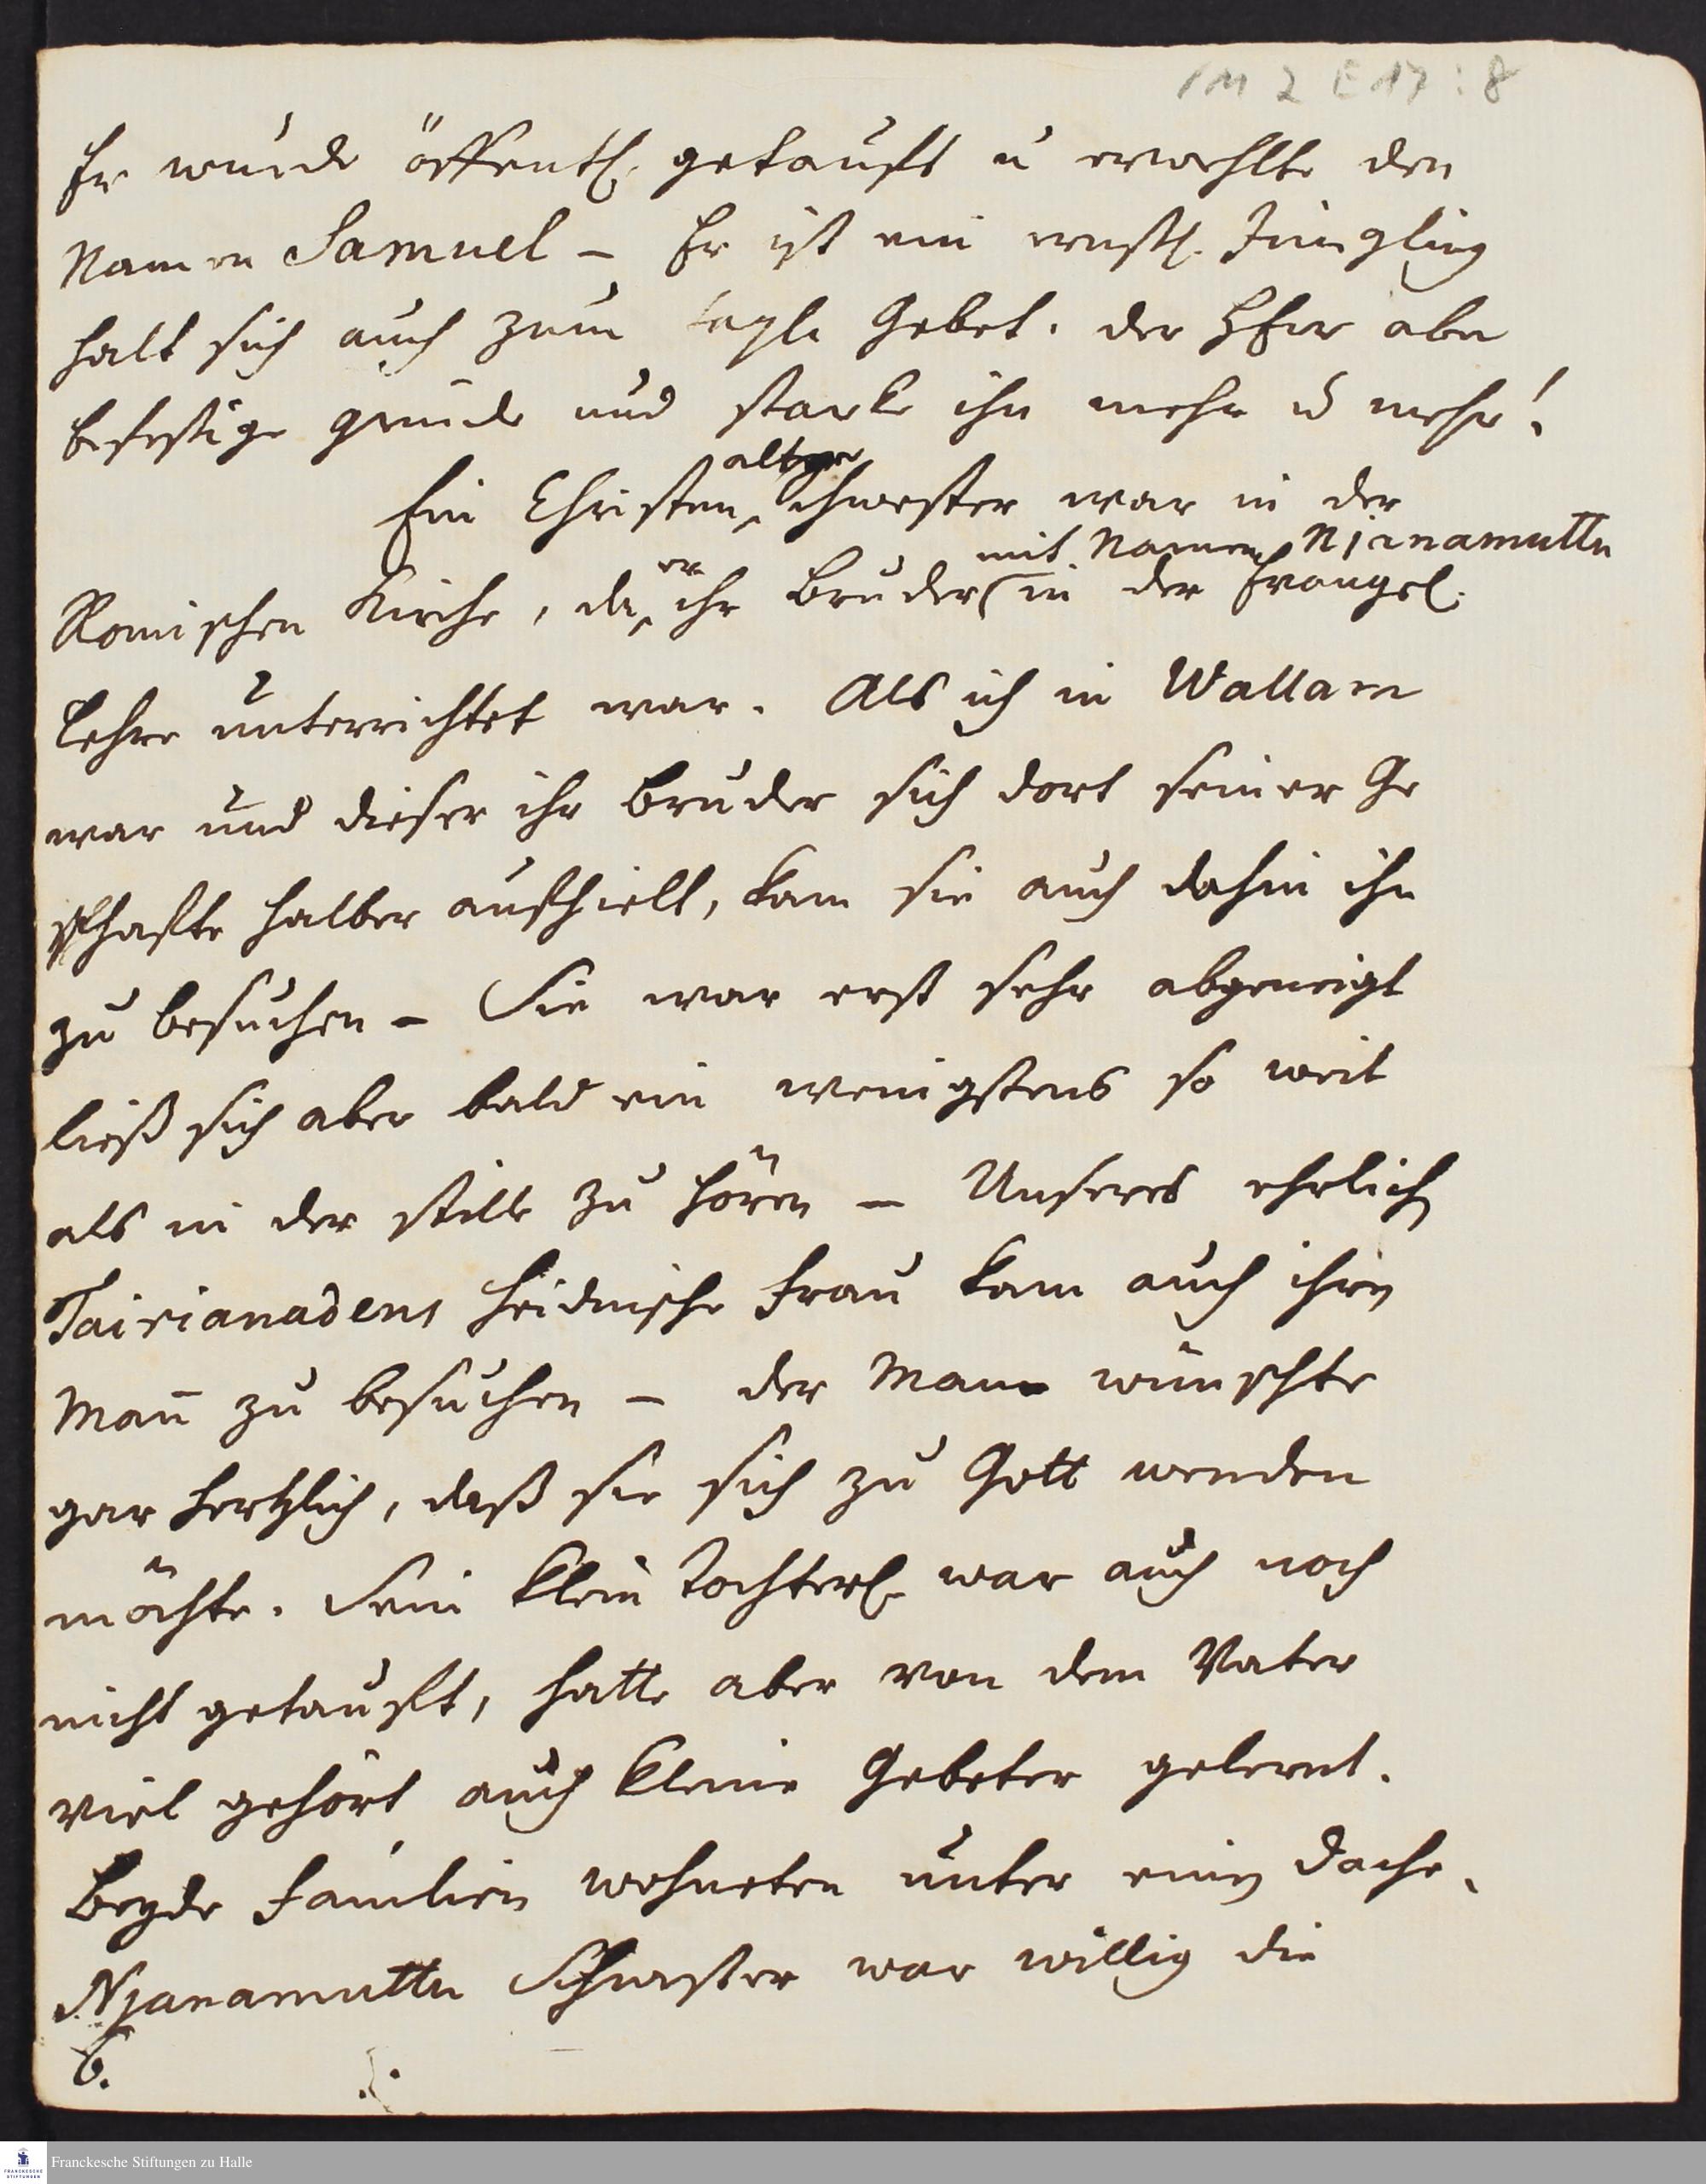 1M 2 E 17 : 8
Er wurde öffentl. getauft u erwehlte den
Namen Samuel – Er ist ein ernstl. Jüngling
halt sich auch zum Gebet. der HErr aber
befestige gründe und starke ihn mehr u mehr!
alter
Ein Christen, Schwester war in der
er mit Namen Njanamuttu
Romischen Kirche, da ihr Bruder (in der Evangel.
Lehre unterrichtet war. Als ich in Wallam
war und dieser ihr Bruder sich dort seiner Ge
schafte halber aufhielt, kam sie auch dahin ihn
zu besuchen – Sie war erst sehr abgeneigt
ließ sich aber bald ein wenigstens so weit
als in der stille zu hören – Unseres ehrlich
Tairianadens heidnische Frau kam auch ihren
Mañ zu besuchen – der Mann wünschte
gar hertzlich, daß sie sich zu Gott wenden
möchte. Sein klein Tochterl. war auch noch
nicht getauft, hatte aber von dem Vater
viel gehört auch kleine Gebeter gelernt.
Beyde Familien wohneten unter einem Dache.
Njanamuttu Schwester war willig die
6.
Franckesche Stiftungen zu Halle